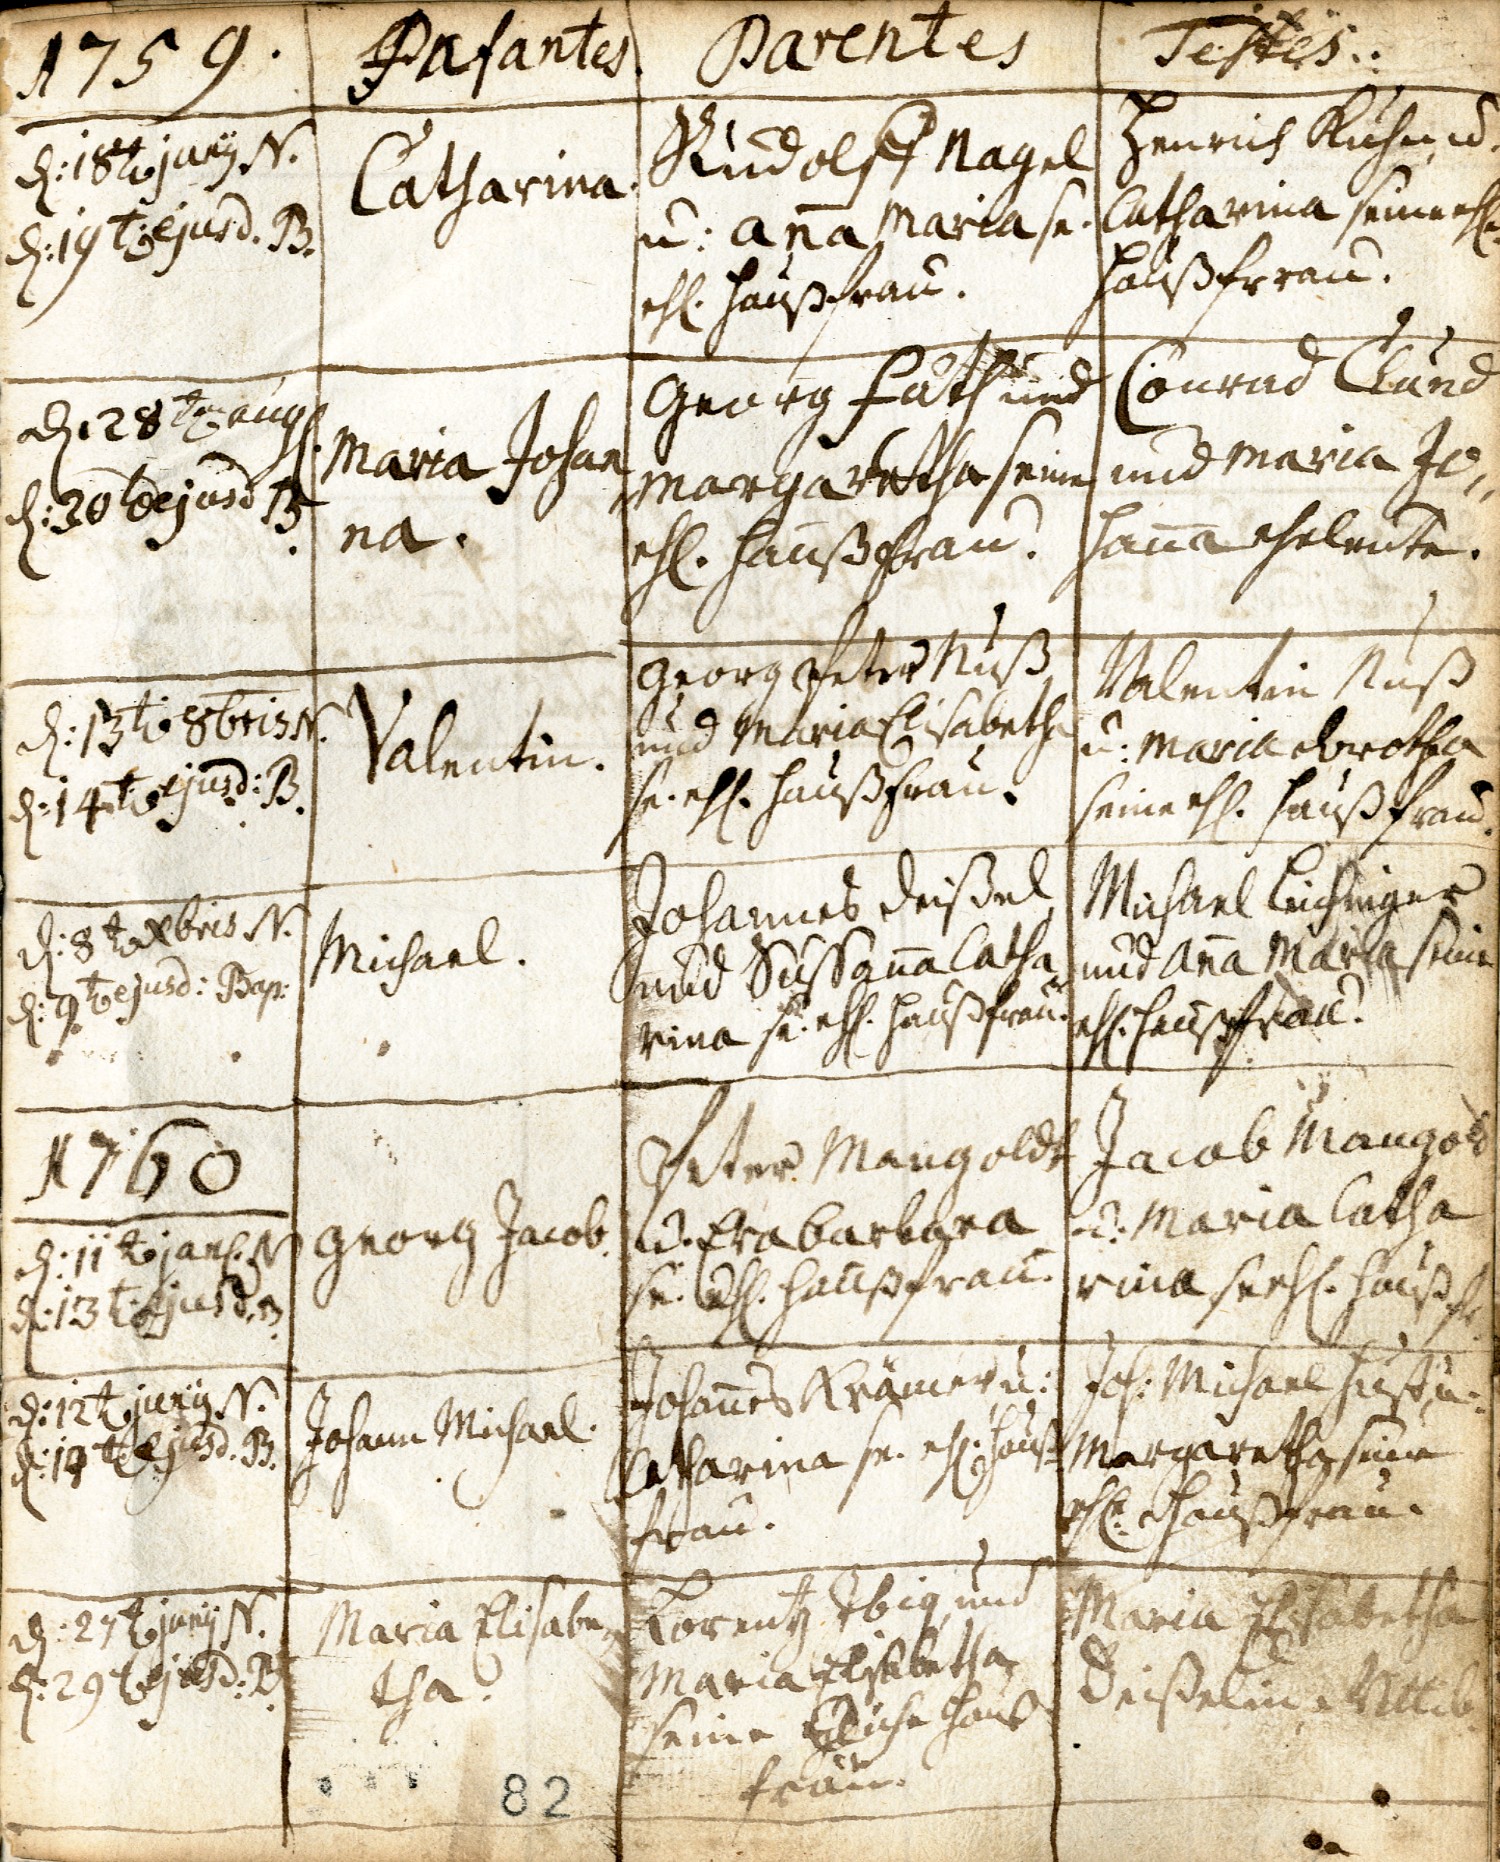 1759.
Pafantes.
Parentes
Testes.
d: 18t junÿ N.
d: 19t ejusd. B.
Catharina.
Rudolff Nagel
u: aña Maria se.
ehl. haußfrau.
Henrich Kuhn u.
Catharina seine ehl.
haußfrrau.
d. 28t aug.
d: 30t ejusd B.
Maria Johan
na.
Georg fath und
Margaretha seine
ehl. haußfrau.
Conrad
und Maria Jo,,
haña eheleuthe.
d: 13t 8bris N.
d: 14t ejusd: B.
Valentin.
Georg Peter Nuß
und Maria Elisabetha
se. ehl. haußfrau.
Valentin Nuß
u: Maria dorothea
seine ehl. haußfrau.
d: 8t Xbris N.
d: 9t ejusd: Bap:
Michael.
Johannes deißel
und Sussaña Catha
rina se. ehl. haußfrau.
Michael Leichinger
und Aña Maria seine
ehl. haußfrau.
1760
d: 11t jan. N
d: 13t ejusd. B.
Georg Jacob.
Peter Mangoldt
u. Eva barbara
se. ehl. haußfrau.
Jacob Mangold
u. Maria Catha
rina se ehl. hauß fr.
d: 12t junÿ N.
d: 14t ejusd. B.
Johann Michael.
Johañes Krämer u:
Catharina se. ehl. hauß
frau.
Joh: Michael u.
Margaretha seine
ehl. haußfrau.
d: 27t junÿ N.
d: 29t ejusd: B.
Maria Elisabe
tha.
Lorentz Ebig und
Maria Elisabetha
seine Ehliche hauß
frau.
Maria Elisabetha
deißelin Wittib.
82